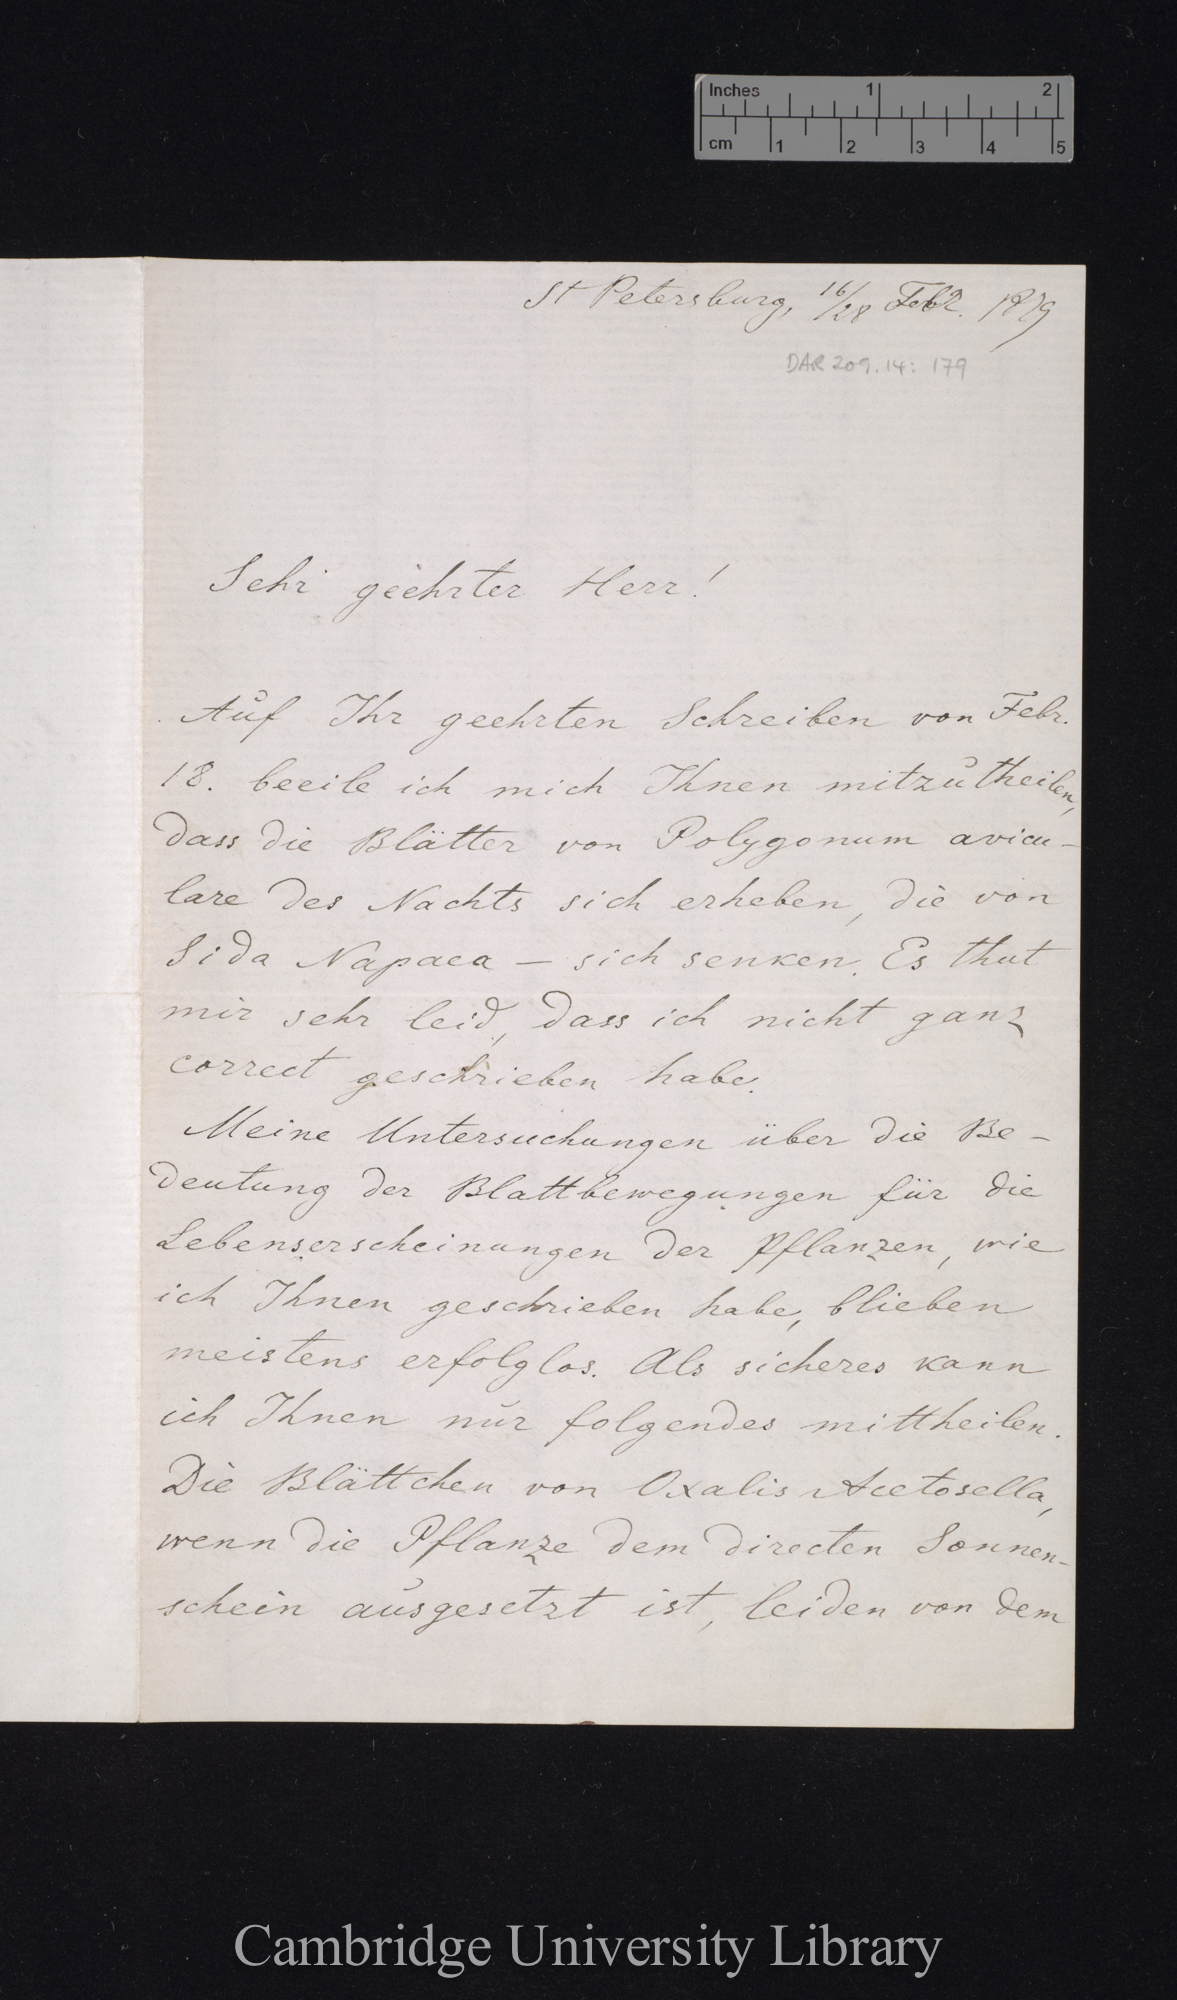 Inches 1 2
cm 1 2 3 4 5
St Petersburg, 16/28 Febr. 1879
DAR 209.14: 179
Sehr geehrter Herr!
Auf Ihr geehrten Schreiben von Febr.
18. beeile ich mich Ihnen mitzutheilen,
dass die Blätter von Polygonum avicu-
lare des Nachts sich erheben, die von
Sida Napaea – sich senken. Es thut
mir sehr leid, dass ich nicht ganz
correct geschrieben habe.
Meine Untersuchungen über die Be-
deutung der Blattbewegungen für die
Lebenserscheinungen der Pflanzen, wie
ich Ihnen geschrieben habe, blieben
meistens erfolglos. Als sicheres kann
ich Ihnen nur folgendes mittheilen.
Die Blättchen von Oxalis Acetosella,
wenn die Pflanze dem directen Sonnen-
schein ausgesetzt ist, leiden von dem
Cambridge University Library